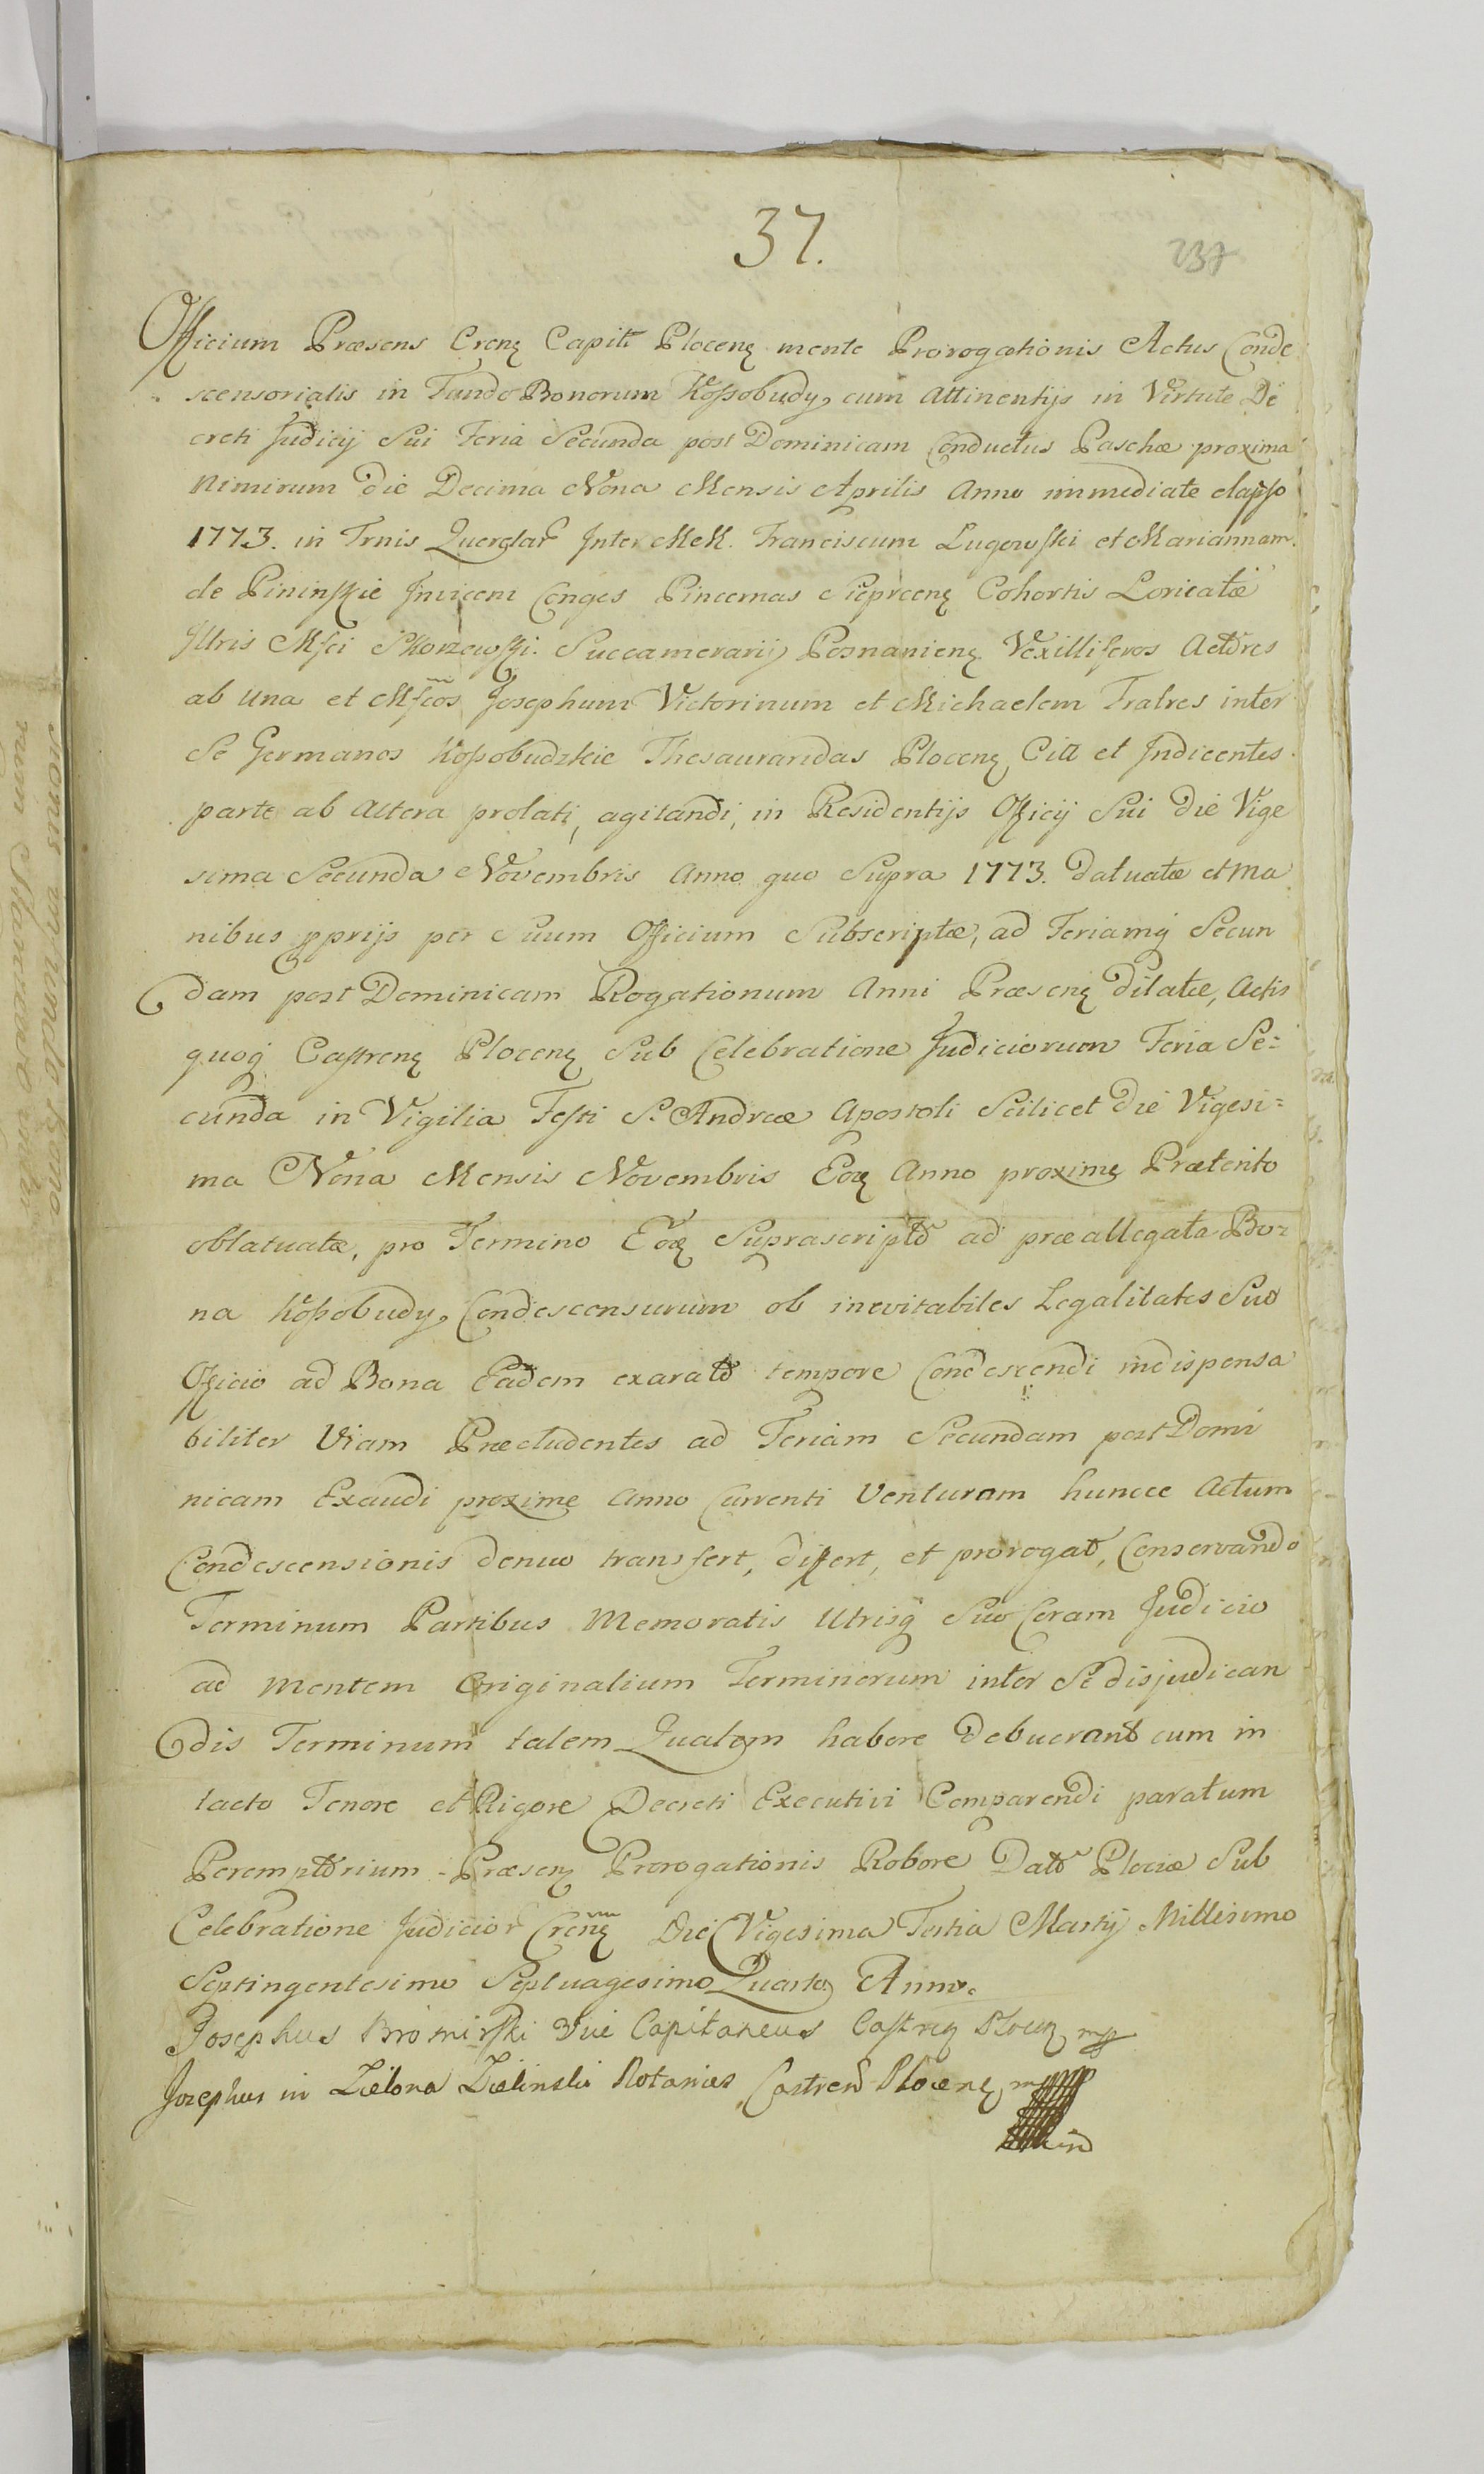 37.
237
Officium Præsens Crenȝ Capitē Plocenȝ mente Prorogationis Actus Conde
scensorialis in Fundo Bonorum Koſsobudy, cum Attinentijs in Virtute De
creti Judicij Sui Feria Secunda post Dominicam Conductus Paschæ proxima
Nimirum die Decima Nona Mensis Aprilis Anno immediate elapso
1773. in Trnis Querelar Inter MM. Franciscum Lugowſki et Mariannam
de Pininſkie Invicem Conges Pincernas Sieprcenȝ Cohortis Loricatæ
Illris Mſci Skorzewſki Succamerarij Posnanienȝ Vexilliferos Actores
ab una et Mſcos Josephum Victorinum et Michaelem Fratres inter
Se Germanos Koſsobudzkie Thesauraridas Plocenȝ Citt et Indicentes
parte ab Altera prolati, agitandi, in Residentijs Officij Sui die Vige
sima Secunda Novembris Anno quo Supra 1773. datuatæ et ma
nibus pprijs per Suum Officium Subscriptæ, ad Feriamq̃ Secun
dam post Dominicam Rogationum Anni Præsenȝ dilatæ, Actis
quoq̃ Caſtrenȝ Plocenȝ Sub Celebratione Judiciorum Feria Se=
cunda in Vigilia Feſti S. Andreæ Apostoli Scilicet die Vigesi=
ma Nona Mensis Novembris Eoȝ Anno proximȩ Præterito
oblatuatæ, pro Termino Eoȝ Suprascripto ad præallegata Bo=
na Koſsobudy, Condescensurum ob inevitabiles Legalitates Suo
Officio ad Bona Eadem exarato tempore Condescendi indispensa
biliter Viam Præcludentes ad Feriam Secundam post Domi
nicam Exaudi proximȩ Anno Currenti Venturam huncce Actum
Condescensionis denuo transfert, differt, et prorogat, Conservando
Terminum Partibus Memoratis Utrisq̃ Suo Coram Judicio
ad mentem Originalium Terminorum inter Se disjudican
dis Terminum talem Qualem habere debuerant cum in
tacto Tenore et Rigore Decreti Executivi Comparendi paratum
Peremptorium - Præsenȝ Prorogationis Robore Dato Plociæ Sub
Celebratione Judicior Crenȝ Die Vigesima Tertia Martij Millesimo
Septingentesimo Septuagesimo Quarto Anno.
Josephus Bromirſki Vice Capitaneus Caſtrenȝ Plocenȝ mp
Josephus in Zielona Zielinski Notarius Castrens Plocenȝ mp